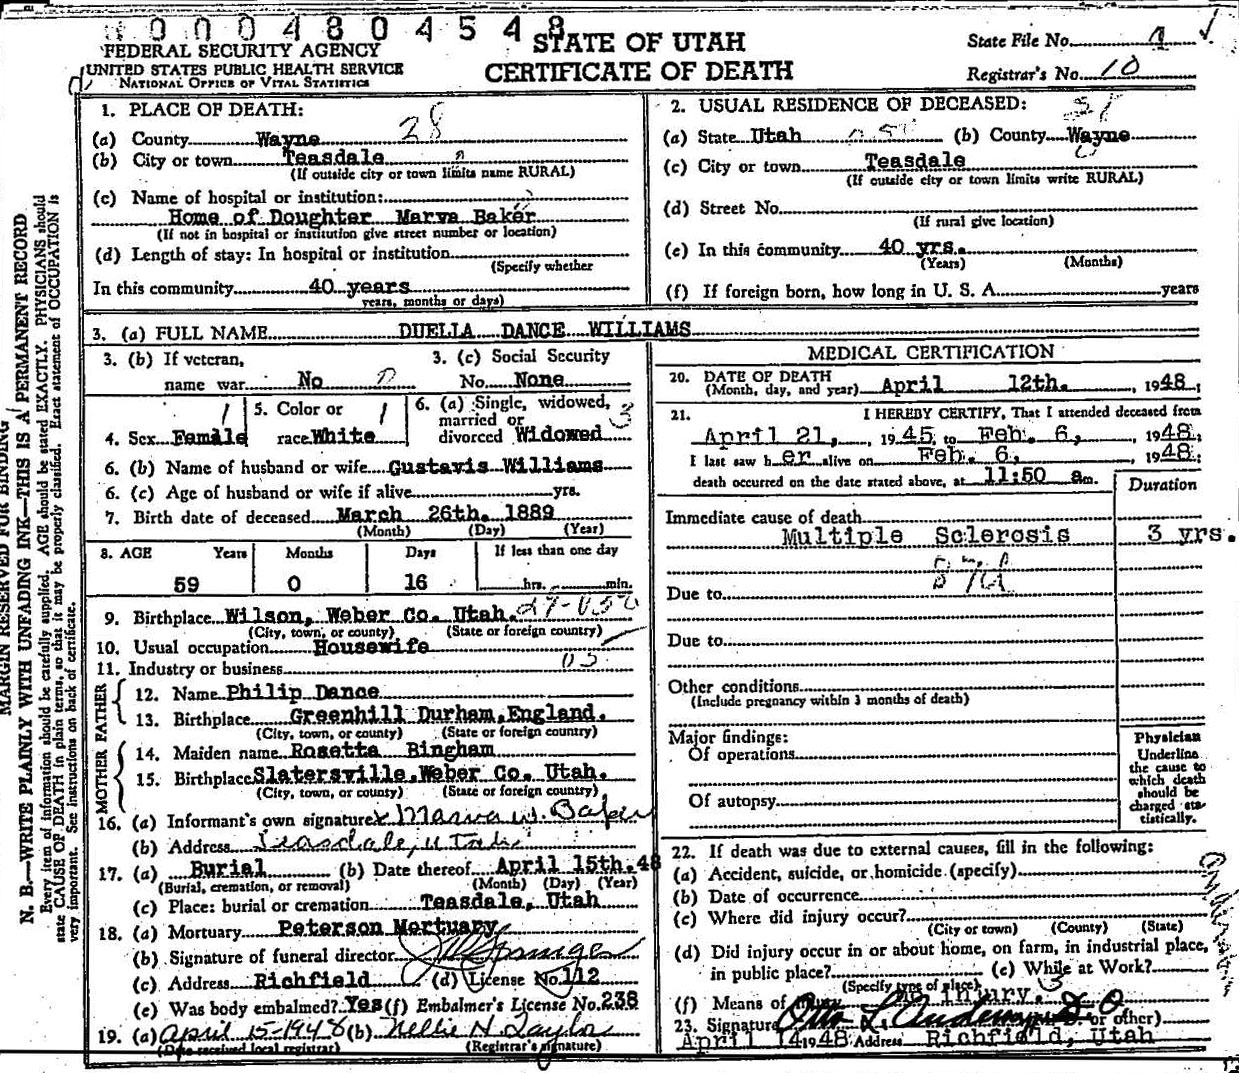 0 0 0 4 8 0 4 5 4 8
FEDERAL SECURITY AGENCY
UNITED STATES PUBLIC HEALTH SERVICE
NATIONAL OFFICE OF VITAL STATISTICS
STATE OF UTAH
CERTIFICATE OF DEATH
State File No.
Registrar's No. 10
MARGIN RESERVED FOR BINDING
N. B.—WRITE PLAINLY WITH UNFADING INK—THIS IS A PERMANENT RECORD
Every item of information should be carefully supplied. AGE should be stated EXACTLY. PHYSICIANS should
state CAUSE OF DEATH in plain terms, so that it may be properly classified. Exact statement of OCCUPATION is
very important. See instructions on back of certificate.
1. PLACE OF DEATH:
(a) County Wayne 28
(b) City or town Teasdale
(If outside city or town limits name RURAL)
(c) Name of hospital or institution:
Home of Doughter Marva Baker
(If not in hospital or institution give street number or location)
(d) Length of stay: In hospital or institution
(Specify whether
In this community 40 years
years, months or days)
2. USUAL RESIDENCE OF DECEASED:
(a) State Utah (b) County Wayne
(c) City or town Teasdale
(If outside city or town limits write RURAL)
(d) Street No.
(If rural give location)
(e) In this community 40 yrs.
(Years) (Months)
(f) If foreign born, how long in U. S. A. years
3. (a) FULL NAME DUELLA DANCE WILLIAMS
3. (b) If veteran,
name war No
3. (c) Social Security
No. None
4. Sex Female
5. Color or
race White
6. (a) Single, widowed,
married or
divorced Widowed
6. (b) Name of husband or wife Gustavis Williams
6. (c) Age of husband or wife if alive yrs.
7. Birth date of deceased March 26th. 1889
(Month) (Day) (Year)
8. AGE Years Months Days If less than one day
59 0 16 hrs. min.
9. Birthplace Wilson, Weber Co. Utah.
(City, town, or county) (State or foreign country)
10. Usual occupation Housewife
11. Industry or business
FATHER
12. Name Philip Dance
13. Birthplace Greenhill Durham, England.
(City, town, or county) (State or foreign country)
MOTHER
14. Maiden name Rosetta Bingham
15. Birthplace Slatersville, Weber Co. Utah.
(City, town, or county) (State or foreign country)
16. (a) Informant's own signature x Marva W. Baker
(b) Address Teasdale, Utah
17. (a) Burial (b) Date thereof April 15th. 48
(Burial, cremation, or removal) (Month) (Day) (Year)
(c) Place: burial or cremation Teasdale, Utah
18. (a) Mortuary Peterson Mortuary
(b) Signature of funeral director
(c) Address Richfield (d) License No. 112
(e) Was body embalmed? Yes (f) Embalmer's License No. 238
19. (a) April 15-1948 (b) Nellie H. Taylor
(Date received local registrar) (Registrar's signature)
MEDICAL CERTIFICATION
20. DATE OF DEATH
(Month, day, and year) April 12th. , 1948;
21. I HEREBY CERTIFY, That I attended deceased from
April 21, , 1945 to Feb. 6, , 1948;
I last saw her alive on Feb. 6, , 1948;
death occurred on the date stated above, at 11:50 am.
Duration
Immediate cause of death
Multiple Sclerosis 3 yrs.
Due to
Due to
Other conditions
(Include pregnancy within 3 months of death)
Major findings:
Of operations
Of autopsy
Physician
Underline
the cause to
which death
should be
charged sta-
tistically.
22. If death was due to external causes, fill in the following:
(a) Accident, suicide, or homicide (specify)
(b) Date of occurrence
(c) Where did injury occur?
(City or town) (County) (State)
(d) Did injury occur in or about home, on farm, in industrial place,
in public place? (e) While at Work?
(Specify type of place)
(f) Means of injury.
23. Signature D.O. or other)
April 14 1948 Address Richfield, Utah